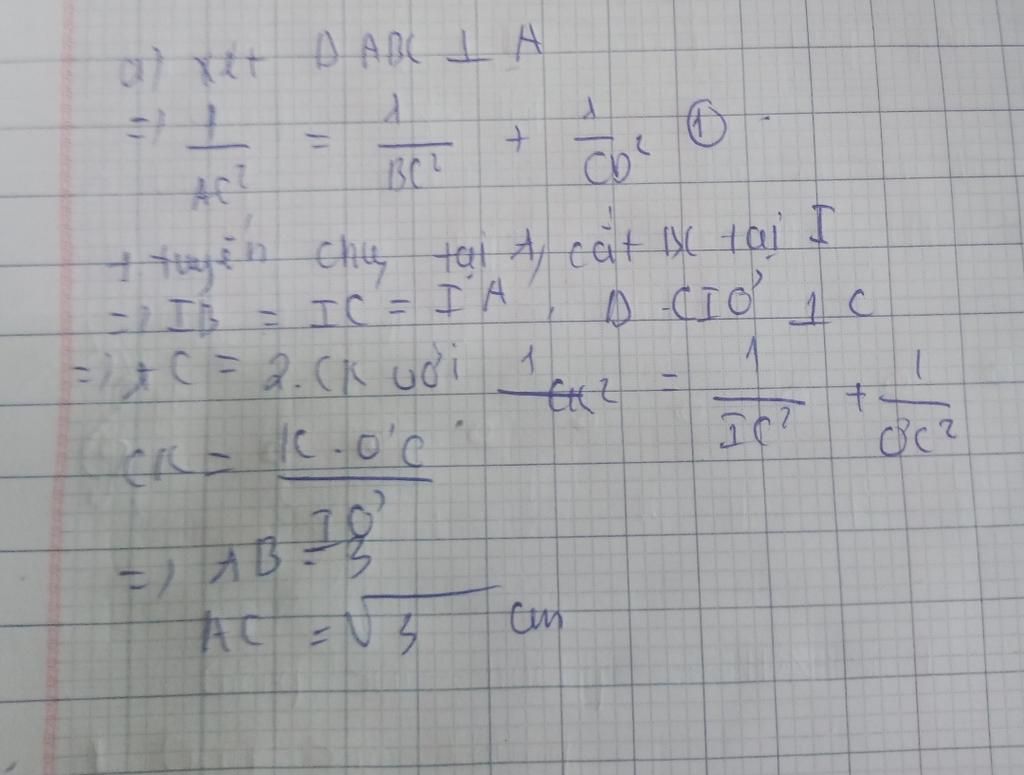 a) xét Δ ABC ⊥ A
=> 1/AC² = 1/BC² + 1/CD² ①
+ tuyến chung tại A, cắt BC tại I
=> IB = IC = IA, Δ CIO' ⊥ C
=> AC = 2.CK với 1/CK² = 1/IC² + 1/O'C²
CK = IC.O'C/IO'
=> AB = 3
AC = √3 cm